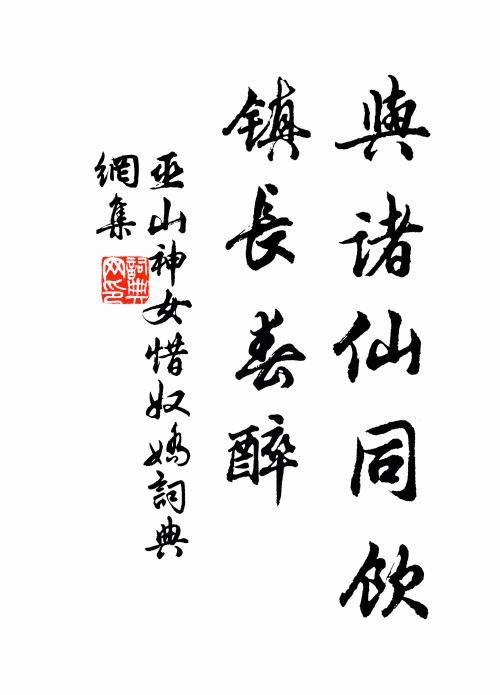 與諸仙同飲
鎮長春醉
巫山神女惜奴嬌詞典
網集
詞典
網印